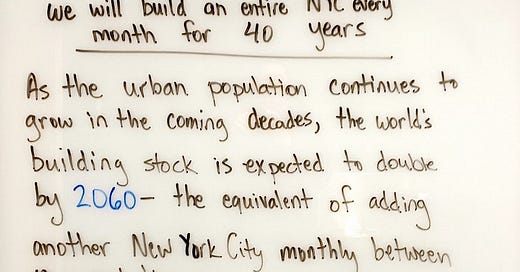 we will build an entire NYC every
month for 40 years
As the urban population continues to
grow in the coming decades, the world's
building stock is expected to double
by 2060- the equivalent of adding
another New York City monthly between